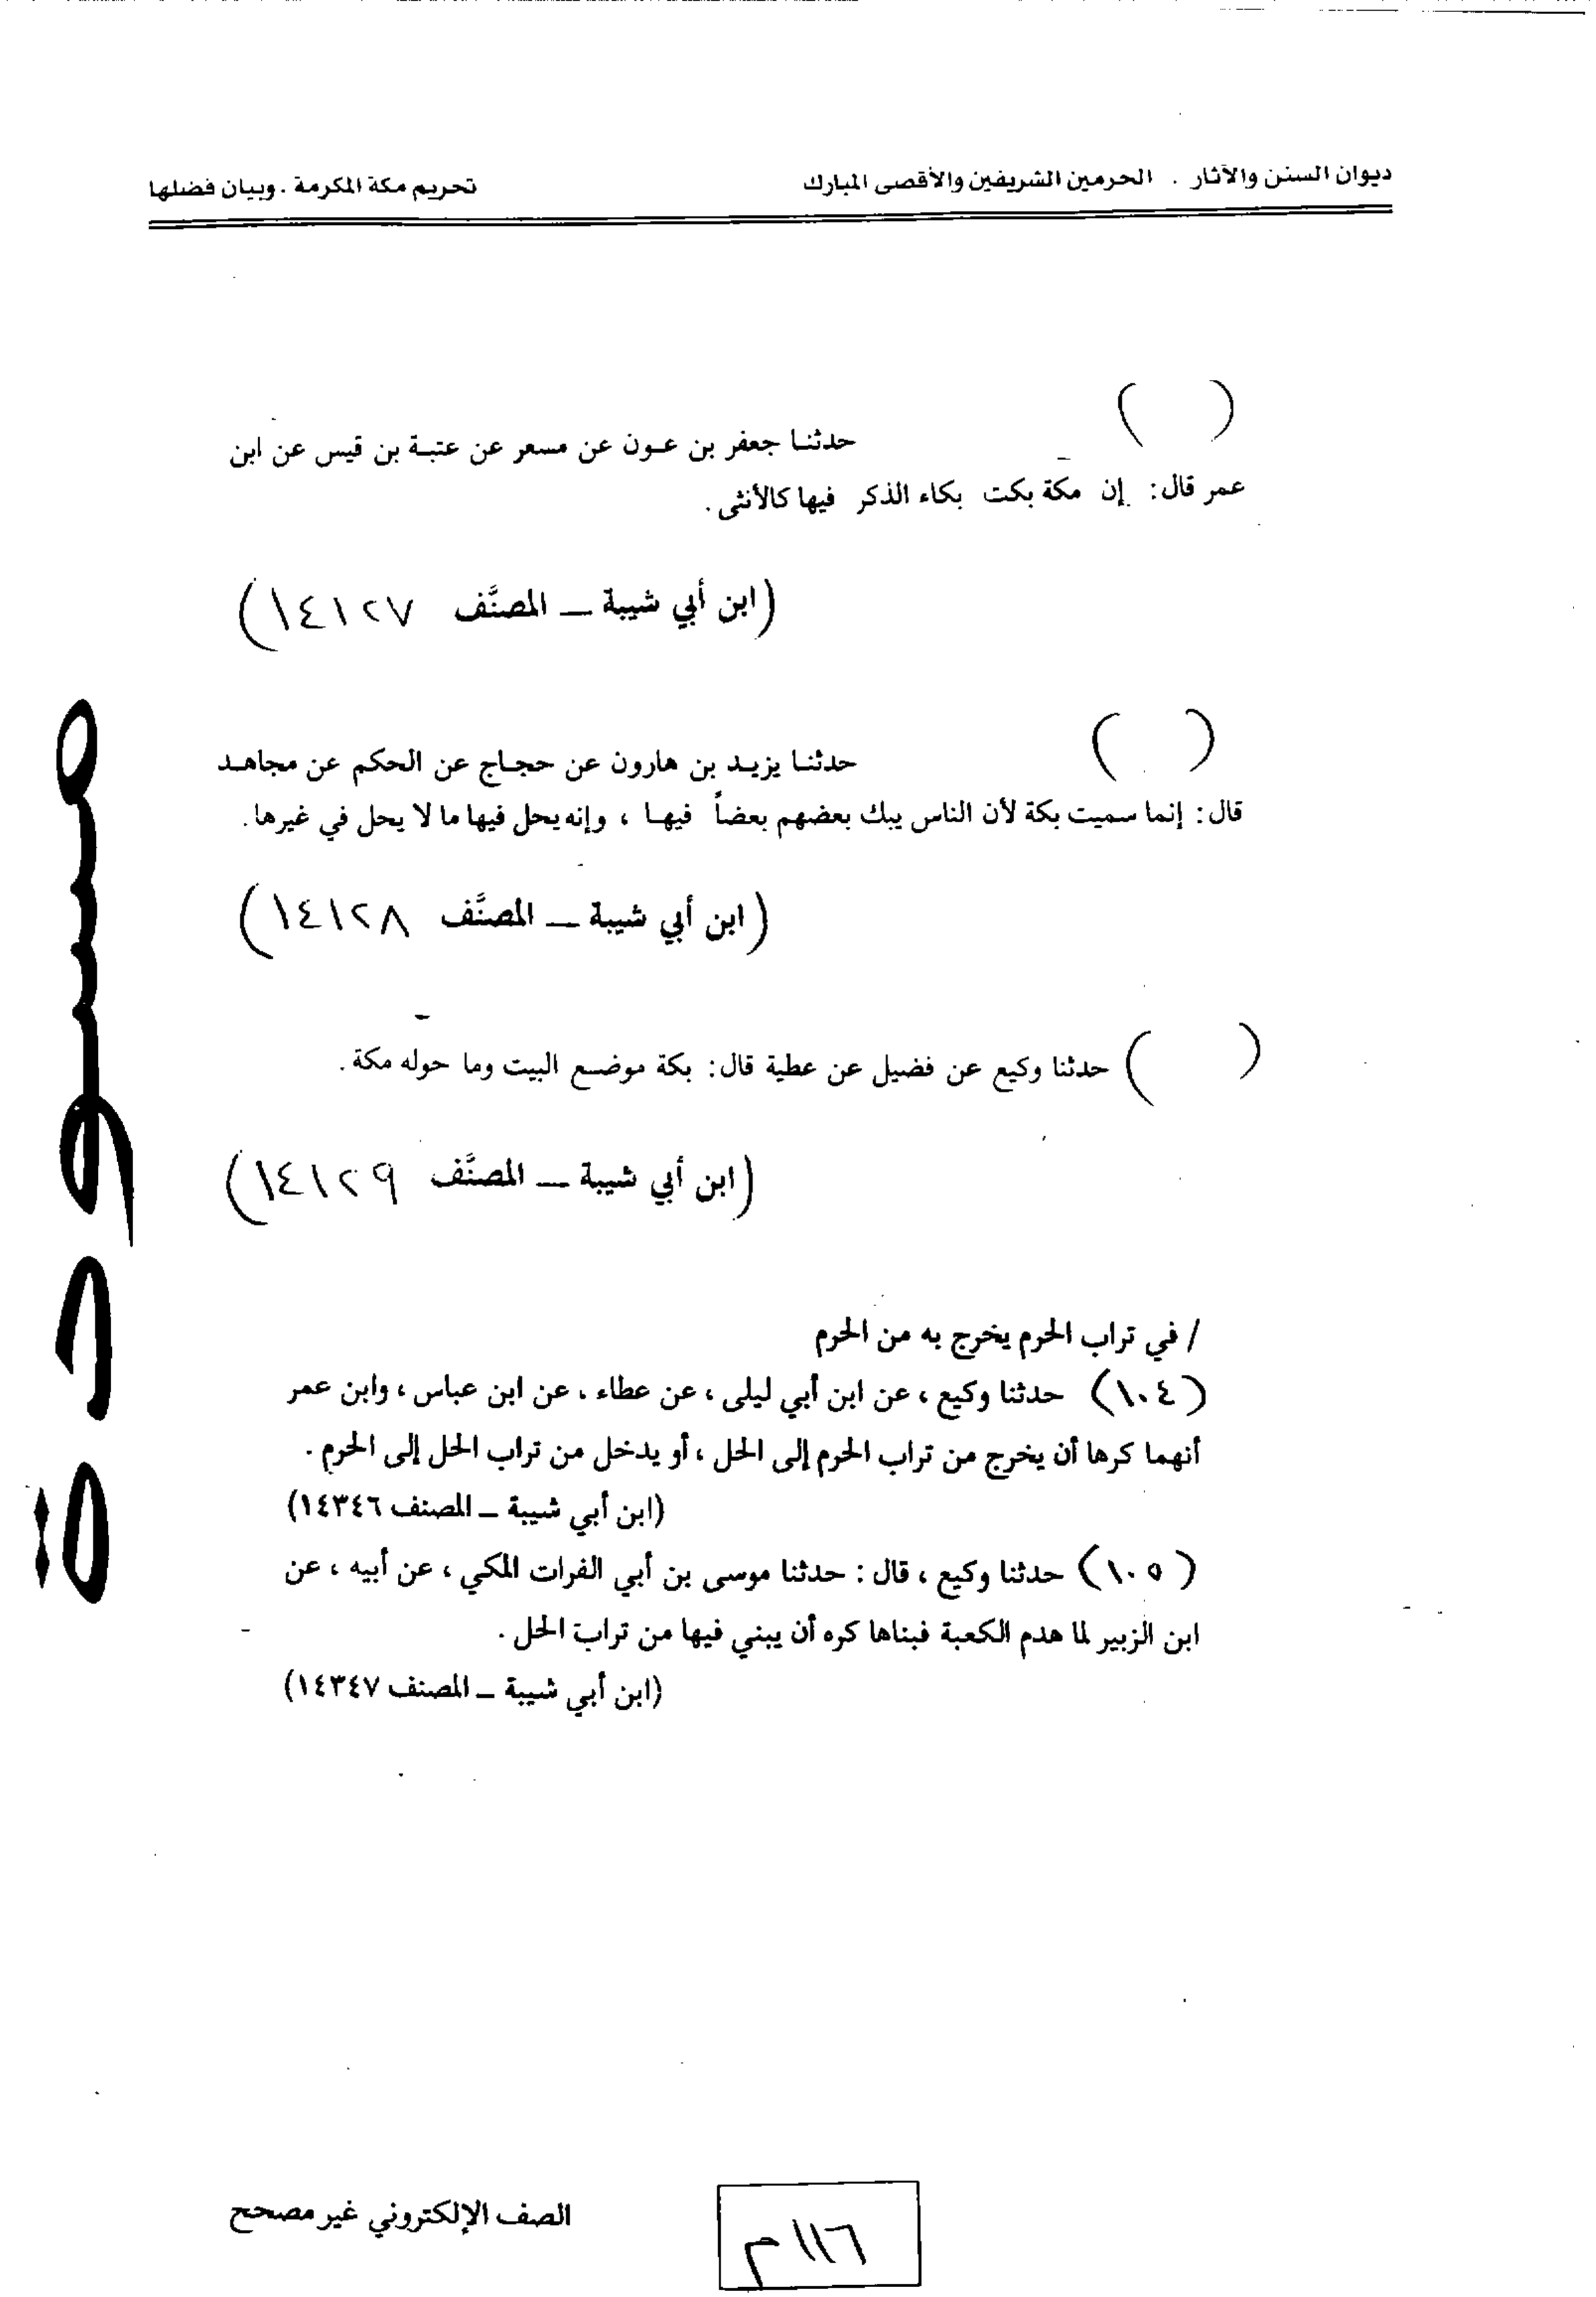 ديوان السنن والآثار . الحرمين الشريفين والأقصى المبارك تحريم مكة المكرمة . وبيان فضلها
( ) حدثنا جعفر بن عون عن مسعر عن عتبة بن قيس عن ابن
عمر قال: إن مكة بكت بكاء الذكر فيها كالأنثى.
(ابن أبي شيبة – المصنَّف ١٤١٢٧)
( ) حدثنا يزيد بن هارون عن حجاج عن الحكم عن مجاهد
قال: إنما سميت بكة لأن الناس يبك بعضهم بعضاً فيها ، وإنه يحل فيها ما لا يحل في غيرها.
(ابن أبي شيبة – المصنَّف ١٤١٢٨)
( ) حدثنا وكيع عن فضيل عن عطية قال: بكة موضع البيت وما حوله مكة.
(ابن أبي شيبة – المصنَّف ١٤١٢٩)
/ في تراب الحرم يخرج به من الحرم
(١٠٤) حدثنا وكيع ، عن ابن أبي ليلى ، عن عطاء ، عن ابن عباس ، وابن عمر
أنهما كرها أن يخرج من تراب الحرم إلى الحل ، أو يدخل من تراب الحل إلى الحرم .
(ابن أبي شيبة – المصنف ١٤٣٤٦)
(١٠٥) حدثنا وكيع ، قال : حدثنا موسى بن أبي الفرات المكي ، عن أبيه ، عن
ابن الزبير لما هدم الكعبة فبناها كره أن يبني فيها من تراب الحل .
(ابن أبي شيبة – المصنف ١٤٣٤٧)
مسودة
الصف الإلكتروني غير مصحح
١١٦م